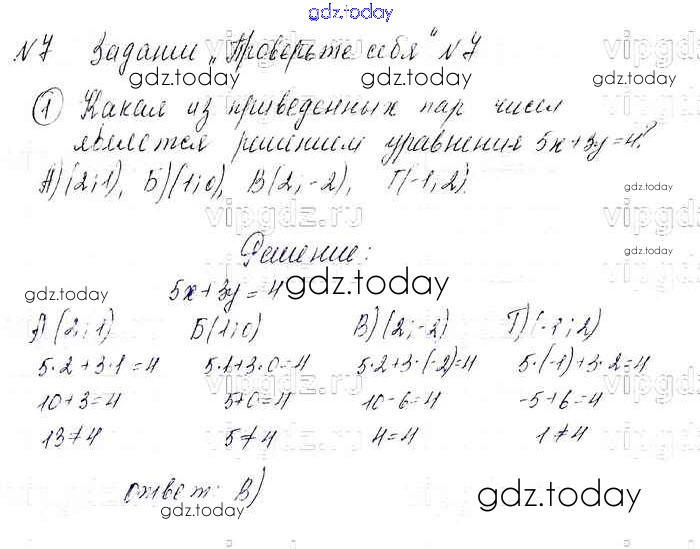 gdz.today
№7 Задании „Проверьте себя" №7
vipgdz.ru
gdz.today gdz.today
① Какая из приведенных пар чисел
является решением уравнения 5x+3y=4?
А) (2;1), Б) (1;0), В (2;-2), Г(-1;2).
gdz.today
vipgdz.ru
Решение:
gdz.today
5x+3y=4
gdz.today
А) (2;1) Б (1;0) В) (2;-2) Г) (-1;2)
5·2+3·1=4 5·1+3·0=4 5·2+3·(-2)=4 5·(-1)+3·2=4
10+3=4 5+0=4 10-6=4 -5+6=4
13≠4 5≠4 4=4 1≠4
ответ: В)
gdz.today gdz.today